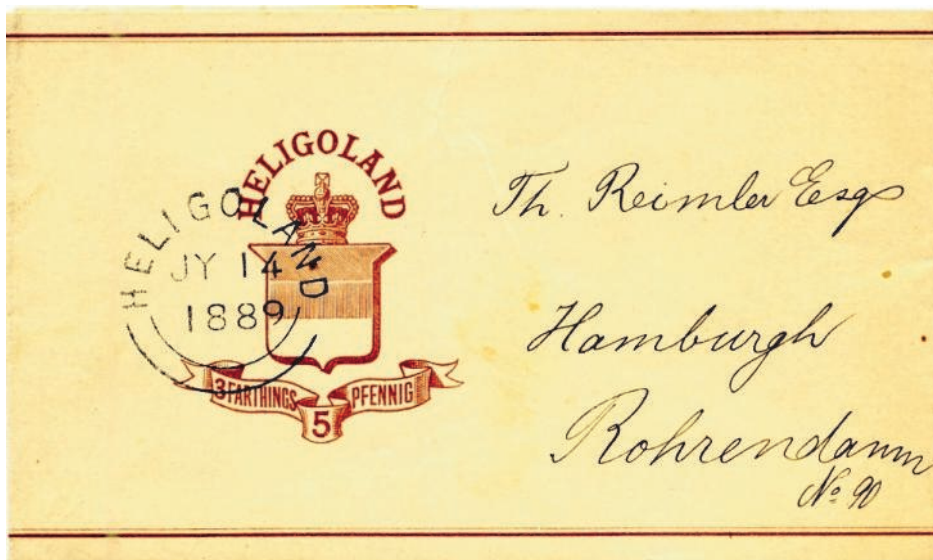 HELIGOLAND
HELIGOLAND
JY 14
1889
3 FARTHINGS 5 PFENNIG
Th. Reimler Esqr
Hamburgh
Rohrendamm
No 90